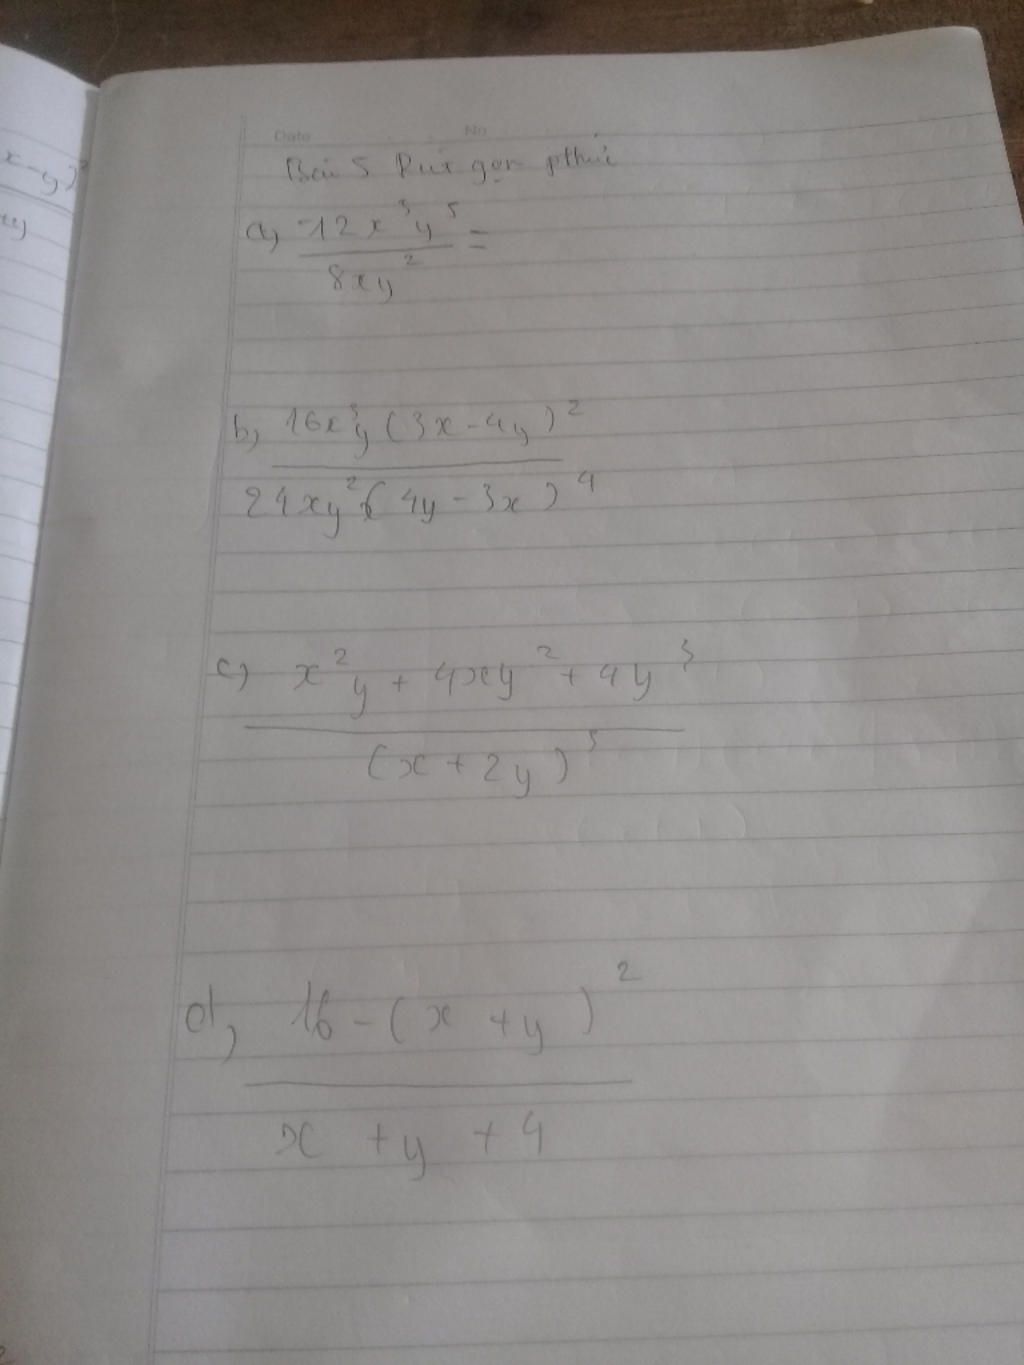 Date No
Bài 5 Rút gọn pthức
a, -12x³y⁵ =
8xy²
b, 16x³y(3x-4y)²
24xy²(4y-3x)⁴
c) x²y + 4xy² + 4y³
(x+2y)³
d, 16-(x+y)²
x+y+4